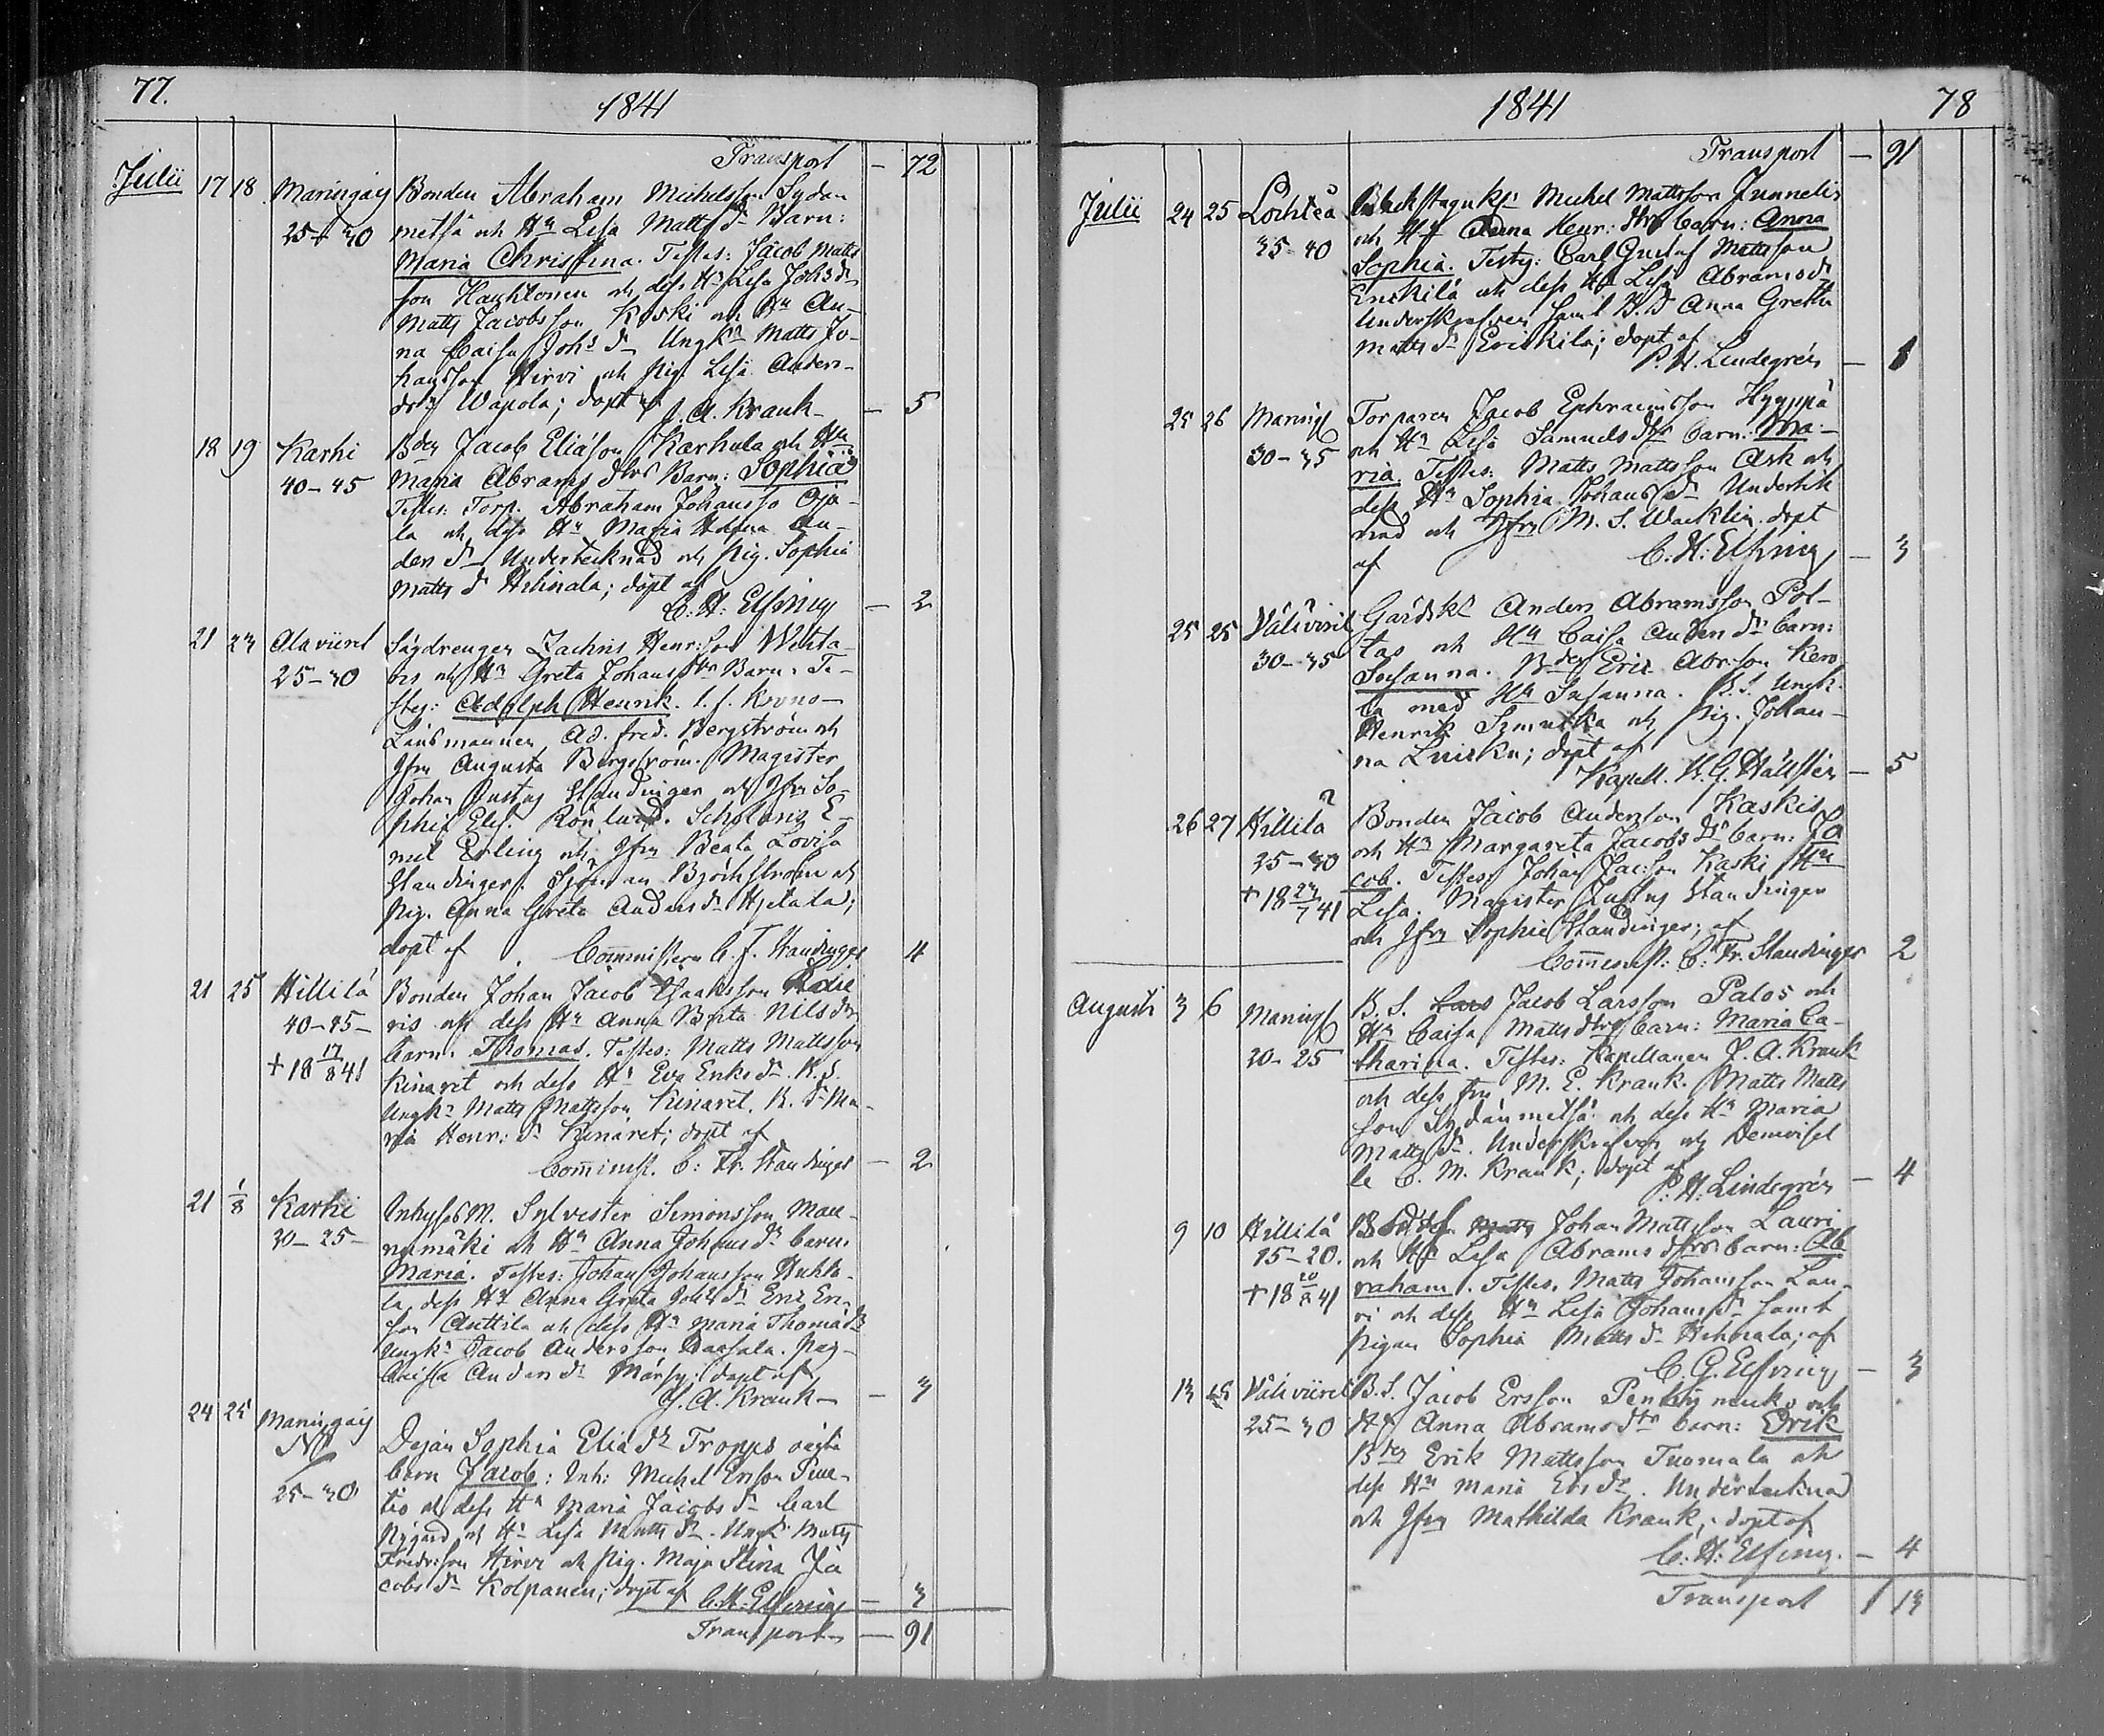 77.
1841
Transport — 72
Julii 17 18 Maningaig Bonden Abraham Michelsson Sydän
25–30 metsä och Hu Lisa Matts dr Barn:
Maria Christina. Testes: Jacob Matts
son Hauhtonen och dess Hu Lisa Johs dr
Matts Jacobsson Koski och Hu An-
na Caisa Johs dr Ungkn Matts Jo-
hansson Hirvi och Pig. Lisa Anders-
dr Wapola; döpt af J. A. Krank — 5
18 19 Karhi Bden Jacob Eliasson Karhula och Hu
40–45 Maria Abrams dtrs Barn: Sophia
Testes: Torp. Abraham Johansso Oja-
la och dess Hu Maria Helena An-
ders dr Undertecknad och Pig. Sophia
Matts dr Hihnala; döpt af
C. H: Elfving — 2
21 23 Alaviiret Sägdrengen Zachris Henr:son Wiita-
25–30 och Hu Greta Johans dtr Barn. Te-
stes: Adolph Henrik. t. f. Krono-
Länsmannen Ad. Fred. Bergström och
Jfru Augusta Bergström. Magister
Johan Justus Staudinger och Jfru So-
phie Elis. Rönlund. Scholaris E-
mil Erling och Jfru Beata Lovisa
Staudinger. Sjöman Björkström och
Pig. Anna Greta Anders dr Hjelala;
döpt af Commistern C. F. Staudinger 4
21 25 Hillilä Bonden Johan Jacob Isaaksson
40–45– ris och dess Hu Anna Brita Nils dtr
+ 18 17/8 41 barn. Thomas. Testes: Matts Mattsson
Kinaret och dess Hu Eva Eriks dr. B. S.
Ungkn Matts Mattsson Kinaret. B. dr Ma-
ria Henr: dr Kinaret; döpt af
Comminist. C: Fr. Staudinger — 2
21 1/8 Karhi Inhyses M. Sylvester Simonsson Man-
30–35– nimäki och Hu Anna Johans dr barn.
Maria. Testes: Johan Johansson Huhta-
la, dess Hu Anna Greta Johs dr Eric Eri-
son Anttila och dess Hu Maria Thomas dr
Ungkn Jacob Andersson Pig.
Caisa Anders dr döpt af
J. A. Krank — 3
24 25 Maningaig
25–30 Dejan Sophia Elias dr Tropps oägta
barn Jacob: Inh: Michel Ersson
tio och dess Hu Maria Jacobs dr Carl
Nygård och Hu Lisa Matts dr. Ungk. Matts
Fredr:son Hirvi och Pig. Maja Stina Ja
cobs dr Kolpanen; döpt af C. H: Elfving — 3
Transport — 91
1841
78
Transport — 91
Julii 24 25 Lochteå Michel Mattsson Junnelis
35–40 och Hu Anna Henr: dtrs barn: Anna
Sophia. Testes: Carl Gustaf Mattsson
Enskilä och dess Hu Lisa Abrams dr
Underskrefven samt B. D Anna Greta
Matts dr Eriskilä; döpt af
P. H. Lindegrén — 1
25 26 Maningg Torparen Jacob Ephraimsson Hyyppä
30–35 och Hu Lisa Samuels dtr barn: Ma-
ria. Testes: Matts Mattsson Ask och
dess Hu Sophia Johans dr Undertek
nad och Jfru M. S. Wacklin. döpt
af C. H: Elfving — 3
25 25 Väliviirit Gårdskn Anders Abramsson Pol-
30–35 tas och Hu Caisa Anders dr barn:
Susanna. Bden Eric Abr:son Kero
la med Hu Susanna. B. S. Ungk.
Henrik och Pig. Johan-
na döpt af
Kapell. K. G. Hällsten — 5
26 27 Hillilä Bonden Jacob Andersson Kaskis
35–40 och Hu Margareta Jacobs dr barn: Ja
+ 18 27/7 41 cob. Testes: Johan Jac:son Kaski Hu
Lisa. Magister Justus Staudinger
och Jfru Sophie Staudinger; af
Comminst: C. Fr. Staudinger 2
Augusti 3 6 Maningg B. S. Lars Jacob Larsson Palos och
20–25 Hu Caisa Matts dtrs barn: Maria Ca-
tharina. Testes: Kapellanen J. A. Krank
och dess fru M. E. Krank. Matts Matts
son Sydänmetsä och dess Hu Maria
Matts dr. Underskrefven och Demoisel
le C. M. Krank; döpt af
P. H: Lindegrén — 4
9 10 Hillilä Matts Johan Mattsson Lauri
15–20. och Hu Lisa Abrams dtrs barn: Ab
+ 18 20/8 41 raham. Testes. Matts Johansson Lau-
ri och dess Hu Lisa Johans dr samt
Pigan Sophia Matts dr Hihnala; af
C. G. Elfving — 3
13 15 Väliviiret B. S. Jacob Ersson och
25–30 Hu Anna Abrams dtr barn: Erik
Bden Erik Mattsson Tuomala och
dess Hu Maria Ers dr. Undertecknad
och Jfru Mathilda Krank; döpt af
C. H: Elfving. — 4
Transport 1 13